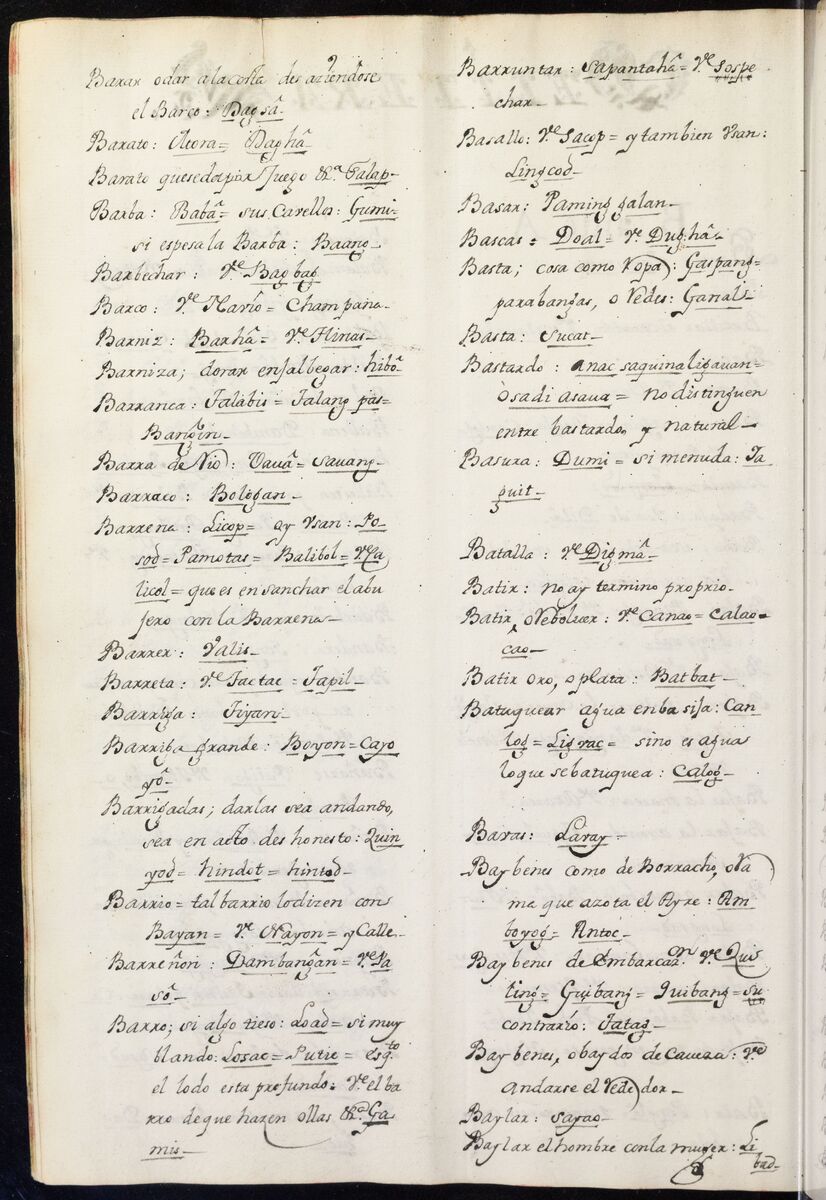 Barar odar a la costa des aziendose
el Barco: Dagsâ_
Barato: Ulora= Daghâ_
Barato que se da por Juego &rª. Talap_
Barba: Babâ= sus Cavellos: Gumi=
si espesa la Barba: Baang_
Barbechar: Vᵉ Bagbag
Barco: Vᵉ Navío= Champana_
Barniz: Barhâ= Vᵉ Hinas_
Barniza; dorar enjalbegar: hibô
Barranca: Talabis= Talang pas=
Bangin_
Barra de Rio: Vavâ= savang_
Barraco: Bologan_
Barrena: Licop= ay vsan: Po=
sod= Pamotas= Balibol= Vᵉ Ja
licol= que es ensanchar el abu
jero con la Barrena_
Barrer: Valis_
Barreta: Vᵉ Tactac= Tapil_
Barriga: Tiyan_
Barriga grande: Boyon= Cayo
yô_
Barrigadas; darlas sea andando,
sea en acto deshonesto: Quin
yod= hindot= hintod_
Barrio= tal barrio lo dizen con
Bayan= Vᵉ Nayon= y Calle_
Barreñon: Dambangan= Vᵉ Pa
sô_
Barro; si algo tieso: Load= si muy
blando: Losac= Putic= esqᵗᵒ
el lodo esta profundo: Vᵉ el ba
rro de que hazen ollas &rª. Ga
mis_
Barruntar: sapantahâ= Vᵉ sospe
char_
Basallo: Vᵉ Sacop= y tambien vsan:
Lingcod_
Basar: Paminggalan_
Bascas= Doal= Vᵉ Dughâ_
Basta; cosa como Ropa: Gaspang=
parabangas, o Redes: Garalis_
Basta: Sucat_
Bastardo: anac saquinaligauan=
òsa di asaua= no distinguen
entre bastardo, y natural_
Basura: Dumi= si menuda: Ja
puit_
Batalla: Vᵉ Digmâ_
Batir: no ay termino proprio_
Batir, o Rebolver: Vᵉ Canao= calao=
cao_
Batir oro, o plata: Batbat_
Batuquear agua en basija: Can
log= Ligvac= sino es agua
lo que se batuquea: Calog_
Bavas: Laray=
Baybenes como de Borracho, o Ra
ma que azota el Ayre: Am
boyog= Antoc_
Baybenes de Embarcazᵒⁿ Vᵉ Quis
ting= Guibang= Quibang= su
contrario: Tatag_
Baybenes, o baydos de caveza: Vᵉ
andarse el Rededor_
Baylar: sayao_
Baylar el hombre con la muger: Li
bad_